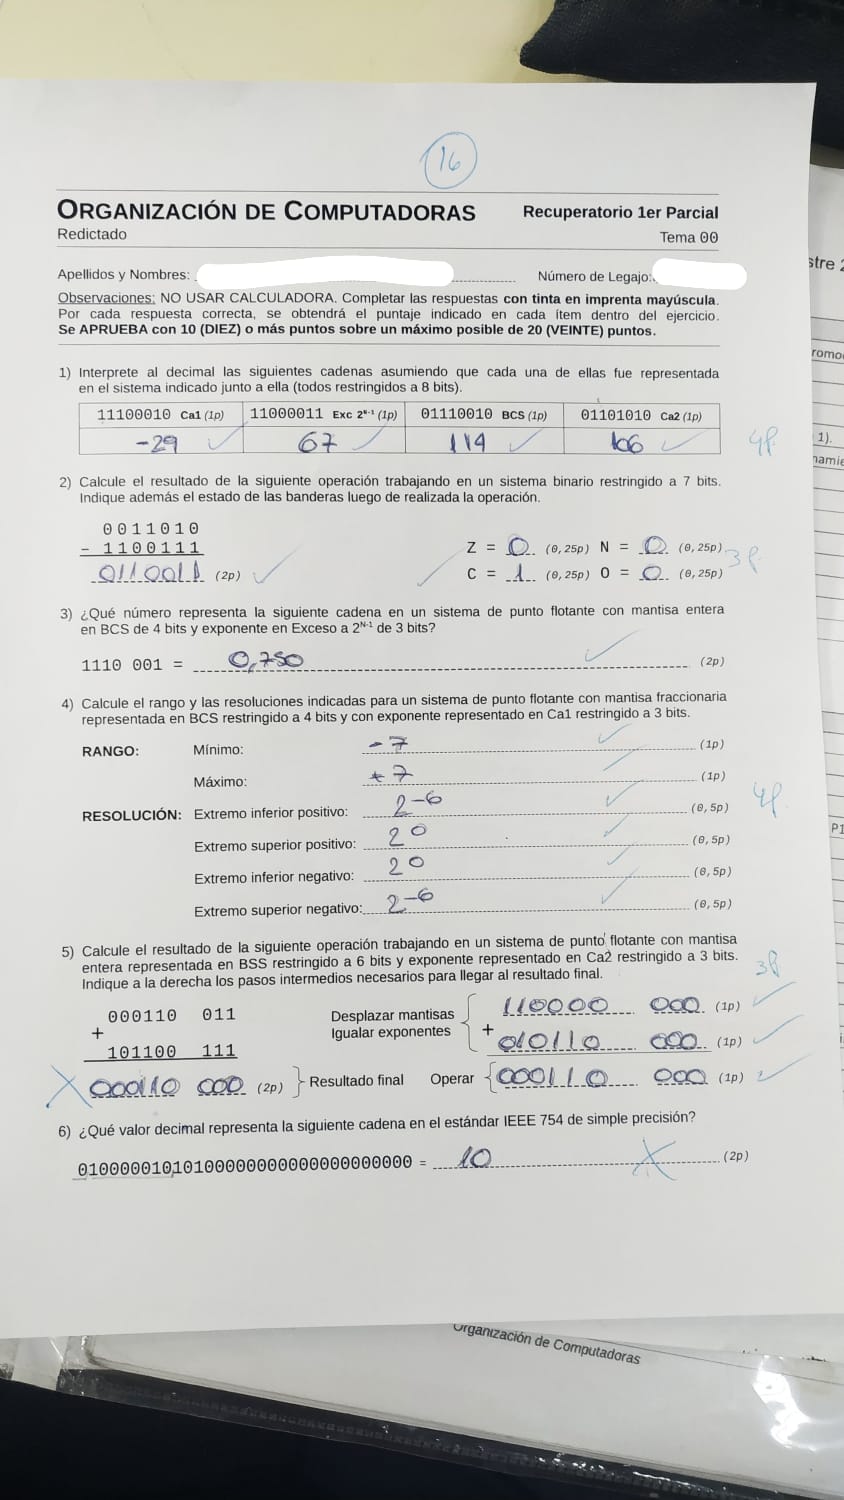 16
ORGANIZACIÓN DE COMPUTADORAS Recuperatorio 1er Parcial
Redictado Tema 00
Apellidos y Nombres: Número de Legajo:
Observaciones: NO USAR CALCULADORA. Completar las respuestas con tinta en imprenta mayúscula.
Por cada respuesta correcta, se obtendrá el puntaje indicado en cada ítem dentro del ejercicio.
Se APRUEBA con 10 (DIEZ) o más puntos sobre un máximo posible de 20 (VEINTE) puntos.
1) Interprete al decimal las siguientes cadenas asumiendo que cada una de ellas fue representada
en el sistema indicado junto a ella (todos restringidos a 8 bits).
11100010 Ca1 (1p) 11000011 Exc 2ᴺ⁻¹ (1p) 01110010 BCS (1p) 01101010 Ca2 (1p)
-29 67 114 106 4p.
2) Calcule el resultado de la siguiente operación trabajando en un sistema binario restringido a 7 bits.
Indique además el estado de las banderas luego de realizada la operación.
0011010
- 1100111 Z = 0 (0,25p) N = 0 (0,25p) 3p
0110011 (2p) C = 1 (0,25p) O = 0 (0,25p)
3) ¿Qué número representa la siguiente cadena en un sistema de punto flotante con mantisa entera
en BCS de 4 bits y exponente en Exceso a 2ᴺ⁻¹ de 3 bits?
1110 001 = 0,750 (2p)
4) Calcule el rango y las resoluciones indicadas para un sistema de punto flotante con mantisa fraccionaria
representada en BCS restringido a 4 bits y con exponente representado en Ca1 restringido a 3 bits.
RANGO: Mínimo: -7 (1p)
Máximo: +7 (1p)
RESOLUCIÓN: Extremo inferior positivo: 2⁻⁶ (0,5p) 4p.
Extremo superior positivo: 2⁰ (0,5p)
Extremo inferior negativo: 2⁰ (0,5p)
Extremo superior negativo: 2⁻⁶ (0,5p)
5) Calcule el resultado de la siguiente operación trabajando en un sistema de punto flotante con mantisa
entera representada en BSS restringido a 6 bits y exponente representado en Ca2 restringido a 3 bits.
Indique a la derecha los pasos intermedios necesarios para llegar al resultado final. 3p
000110 011 Desplazar mantisas 110000 000 (1p)
+ Igualar exponentes +
101100 111 010110 000 (1p)
000110 000 (2p) Resultado final Operar 000110 000 (1p)
6) ¿Qué valor decimal representa la siguiente cadena en el estándar IEEE 754 de simple precisión?
01000001010100000000000000000000 = 10 (2p)
Organización de Computadoras